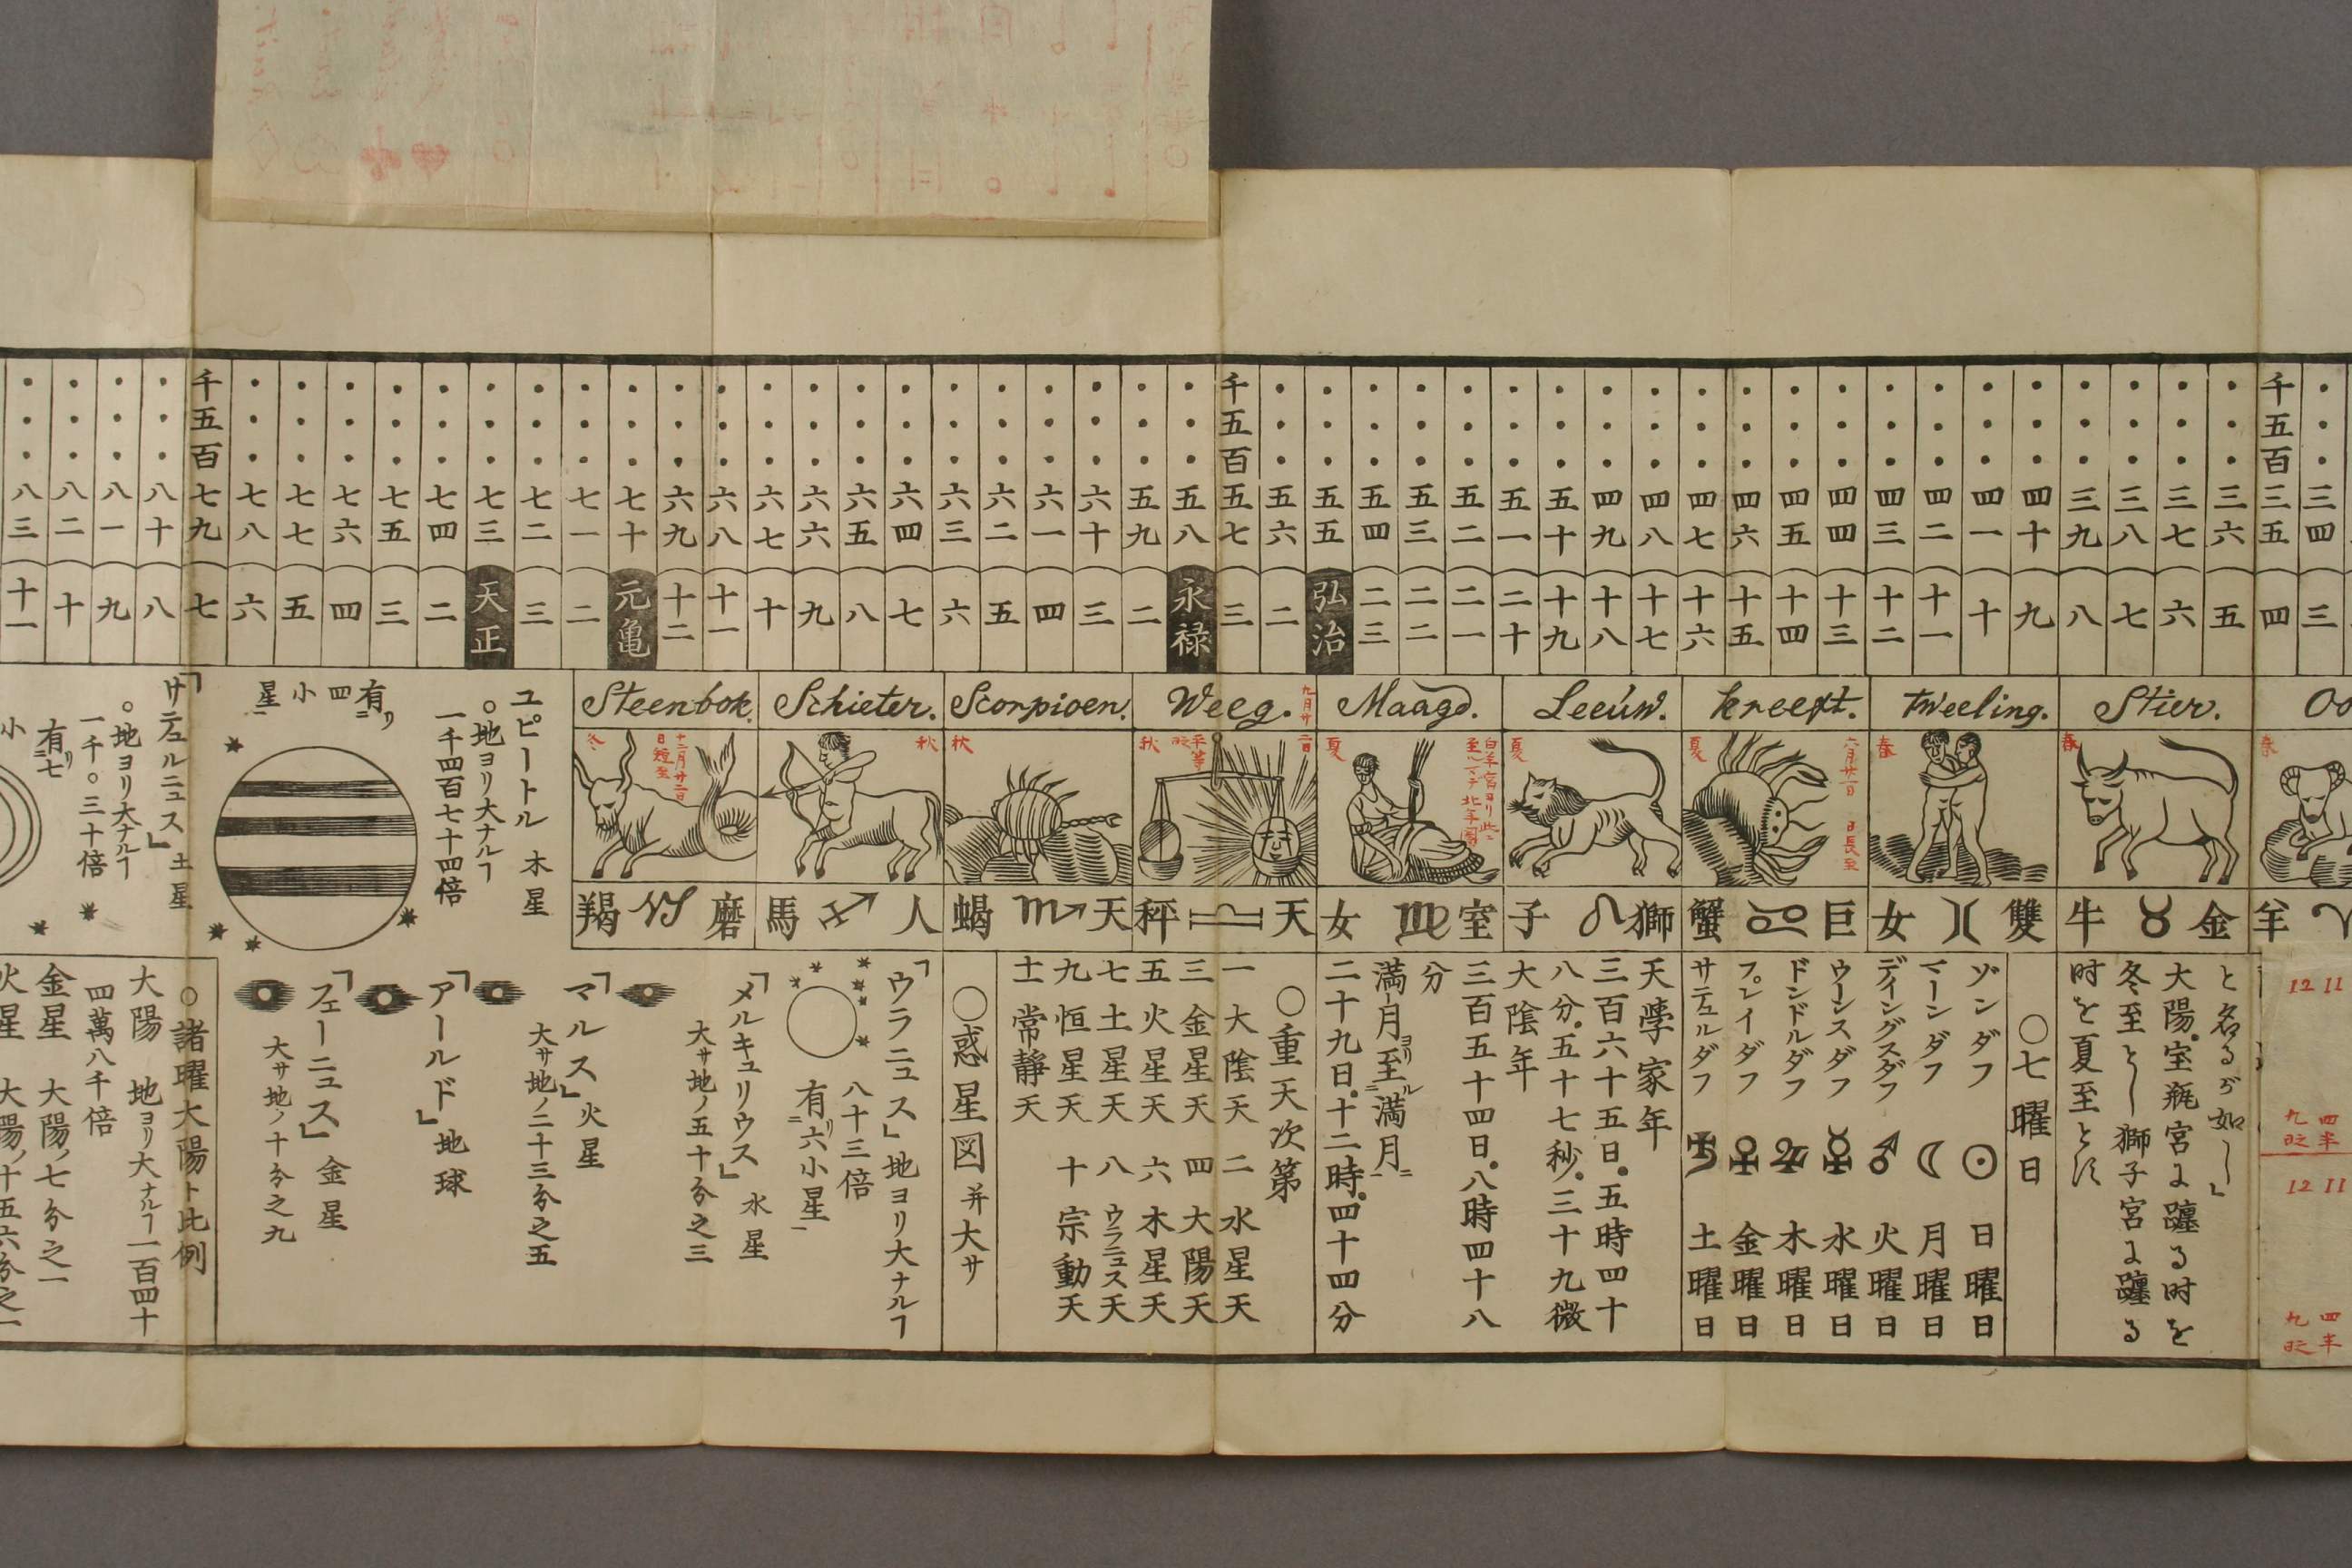 ・・・三四 三
千五百三五 四
・・・三六 五
・・・三七 六
・・・三八 七
・・・三九 八
・・・四十 九
・・・四一 十
・・・四二 十一
・・・四三 十二
・・・四四 十三
・・・四五 十四
・・・四六 十五
・・・四七 十六
・・・四八 十七
・・・四九 十八
・・・五十 十九
・・・五一 二十
・・・五二 二一
・・・五三 二二
・・・五四 二三
・・・五五 弘治
・・・五六 二
千五百五七 三
・・・五八 永禄
・・・五九 二
・・・六十 三
・・・六一 四
・・・六二 五
・・・六三 六
・・・六四 七
・・・六五 八
・・・六六 九
・・・六七 十
・・・六八 十一
・・・六九 十二
・・・七十 元亀
・・・七一 二
・・・七二 三
・・・七三 天正
・・・七四 二
・・・七五 三
・・・七六 四
・・・七七 五
・・・七八 六
千五百七九 七
・・・八十 八
・・・八一 九
・・・八二 十
・・・八三 十一
春
♈ 羊
Stier.
春
金 ♉ 牛
Tweeling.
春
雙 ♊ 女
Kreeft.
六月廿一日 日長至
夏
巨 ♋ 蟹
Leeuw.
夏
獅 ♌ 子
Maagd.
夏
室 ♍ 女
Weeg.
九月廿二日
平等
秋
天 ♎ 秤
Scorpioen.
秋
天 ♏ 蝎
Schieter.
秋
人 ♐ 馬
Steenbok.
十二月廿二日
日短至
冬
磨 ♑ 羯
ユピートル 木星
○地ヨリ大ナルヿ
一千四百七十四倍
有リ四小星
「サテュルニュス」土星
○地ヨリ大ナルヿ
一千○三十倍
有リ七
小
11
12
四半
九時
11
12
四半
九時
と名るが如し」
大陽宝瓶宮に躔る时を
冬至とし獅子宮に躔る
时を夏至とす
○七曜日
ゾンダフ ☉ 日曜日
マーンダフ ☾ 月曜日
ディングスダフ ♂ 火曜日
ウーンスダフ ☿ 水曜日
ドンドルダフ ♃ 木曜日
フレイダフ ♀ 金曜日
サテュルダフ ♄ 土曜日
天學家年
三百六十五日五時四十
八分五十七秒三十九微
大陰年
三百五十四日八時四十八
分
満月ヨリ至ル満月ニ
二十九日十二時四十四分
○重天次第
一大陰天 二水星天
三金星天 四大陽天
五火星天 六木星天
七土星天 八ウラニュス天
九恒星天 十宗動天
十一常靜天
○惑星図并大サ
「ウラニュス」地ヨリ大ナルヿ
八十三倍
有リ六小星
「メルキュリウス」水星
大サ地ノ五十分之三
「マルス」火星
大サ地ノ二十三分之五
「アールド」地球
「フェーニュス」金星
大サ地ノ十分之九
○諸曜大陽ト比例
大陽 地ヨリ大ナルヿ一百四十
四萬八千倍
金星 大陽ノ七分之一
火星 大陽ノ十五六分之一